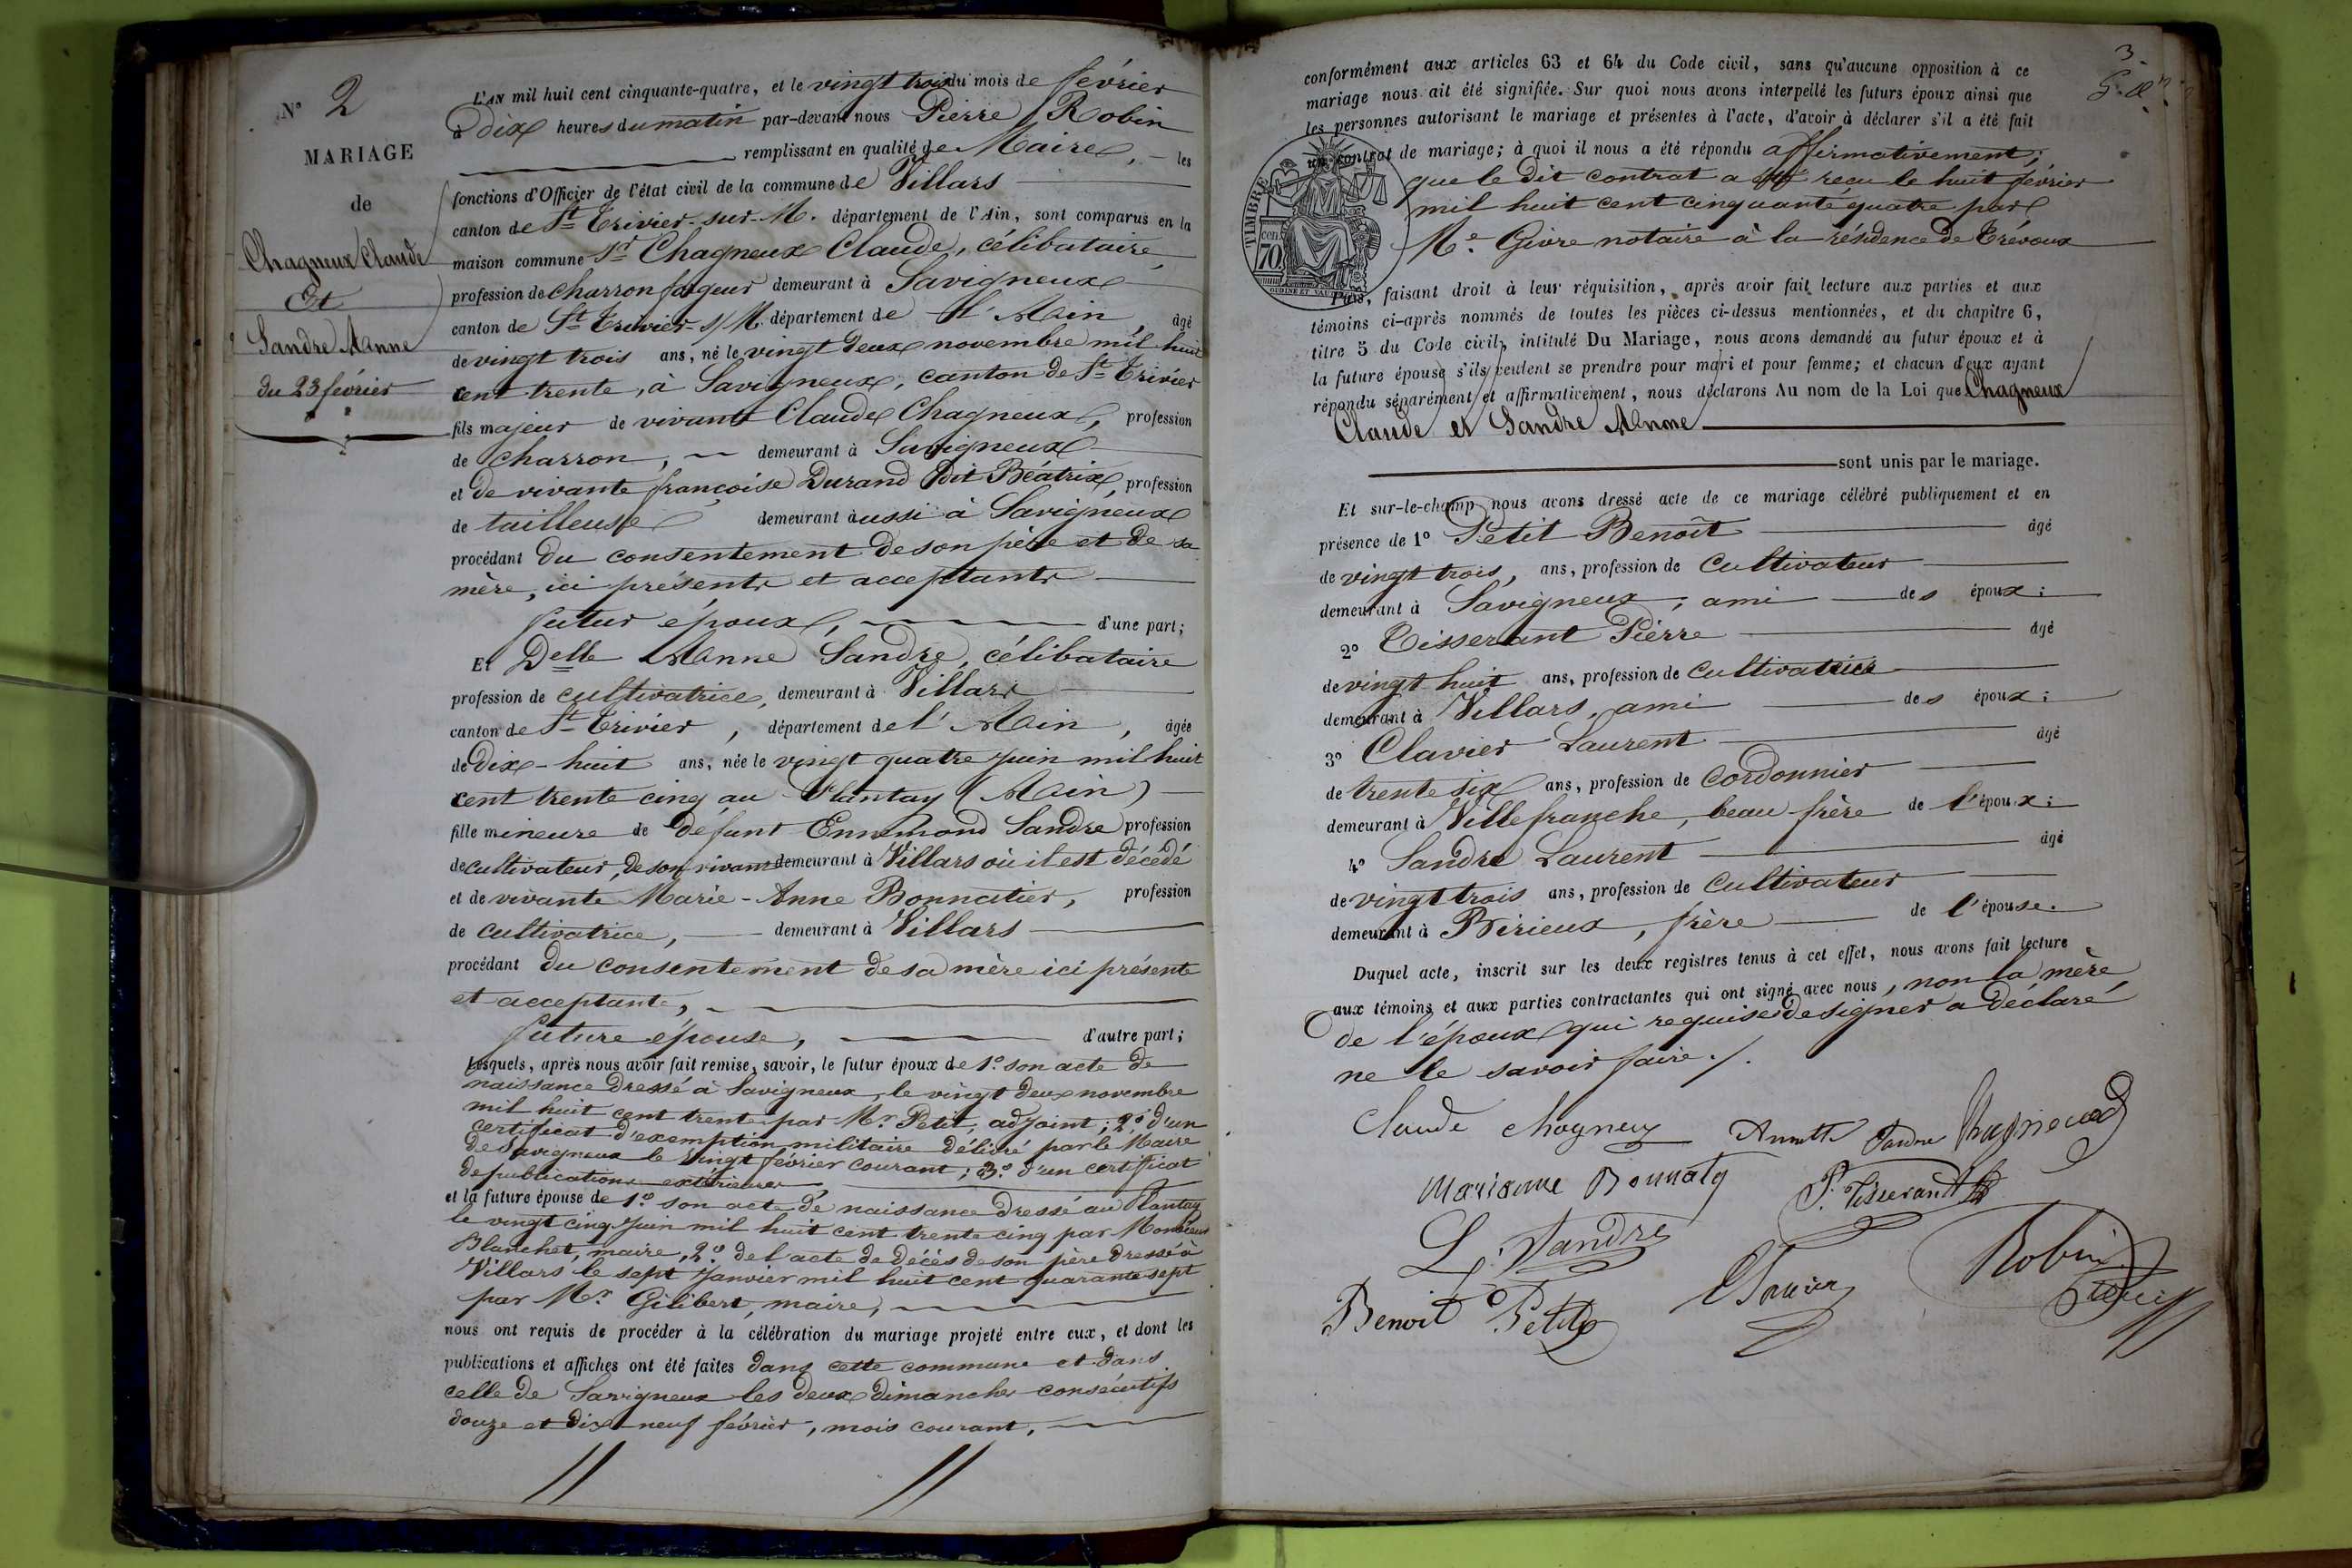 N° 2
MARIAGE
de
Chagneux Claude
Et
Sandre Anne
du 23 février
L'AN mil huit cent cinquante-quatre, et le vingt trois du mois de février
à dix heures du matin par-devant nous Pierre Robin
remplissant en qualité de Maire, les
fonctions d'Officier de l'état civil de la commune de Villars
canton de St Trivier-sur-M. département de l'Ain, sont comparus en la
maison commune Sr Chagneux Claude, célibataire,
profession de charron forgeur demeurant à Savigneux
canton de St Trivier-s/M. département de l'Ain, âgé
de vingt trois ans, né le vingt deux novembre mil huit
cent trente, à Savigneux, canton de St Trivier
fils majeur de vivant Claude Chagneux, profession
de charron, demeurant à Savigneux
et de vivante françoise Durand dit Béatrix, profession
de tailleuse demeurant aussi à Savigneux
procédant du consentement de son père et de sa
mère, ici présents et acceptants
futur époux, d'une part;
Et Delle Anne Sandre, célibataire
profession de cultivatrice, demeurant à Villars
canton de St Trivier, département de l'Ain, âgée
de dix-huit ans, née le vingt quatre juin mil huit
cent trente cinq au Plantay (Ain)
fille mineure de défunt Ennemond Sandre profession
de cultivateur, de son vivant demeurant à Villars où il est décédé
et de vivante Marie-Anne Bonnatier, profession
de cultivatrice, demeurant à Villars
procédant du consentement de sa mère ici présente
et acceptante,
future épouse, d'autre part;
Lesquels, après nous avoir fait remise, savoir, le futur époux de 1° son acte de
naissance dressé à Savigneux, le vingt deux novembre
mil huit cent trente par Mr Petit, adjoint; 2° d'un
certificat d'exemption militaire délivré par le Maire
de Savigneux le vingt février courant; 3° d'un certificat
de publications extérieures
et la future épouse de 1° son acte de naissance dressé au Plantay
le vingt cinq juin mil huit cent trente cinq par Monsieur
Blanchet, maire, 2° de l'acte de décès de son père dressé à
Villars le sept janvier mil huit cent quarante sept
par Mr Gilibert, maire,
nous ont requis de procéder à la célébration du mariage projeté entre eux, et dont les
publications et affiches ont été faites dans cette commune et dans
celle de Savigneux les deux dimanches consécutifs
douze et dix neuf février, mois courant,
3
conformément aux articles 63 et 64 du Code civil, sans qu'aucune opposition à ce
mariage nous ait été signifiée. Sur quoi nous avons interpellé les futurs époux ainsi que
les personnes autorisant le mariage et présentes à l'acte, d'avoir à déclarer s'il a été fait
un contrat de mariage; à quoi il nous a été répondu affirmativement;
que le dit contrat a été reçu le huit février
mil huit cent cinquante quatre par
Me Givre notaire à la résidence de Trévoux
TIMBRE
cen
70
Puis, faisant droit à leur réquisition, après avoir fait lecture aux parties et aux
témoins ci-après nommés de toutes les pièces ci-dessus mentionnées, et du chapitre 6,
titre 5 du Code civil, intitulé Du Mariage, nous avons demandé au futur époux et à
la future épouse s'ils veulent se prendre pour mari et pour femme; et chacun d'eux ayant
répondu séparément et affirmativement, nous déclarons Au nom de la Loi que Chagneux
Claude et Sandre Anne
sont unis par le mariage.
Et sur-le-champ nous avons dressé acte de ce mariage célébré publiquement et en
présence de 1° Petit Benoît âgé
de vingt trois, ans, profession de cultivateur
demeurant à Savigneux, ami des époux;
2° Tisserant Pierre âgé
de vingt huit ans, profession de cultivatrice
demeurant à Villars, ami des époux;
3° Clavier Laurent âgé
de trente six ans, profession de cordonnier
demeurant à Villefranche, beau frère de l'époux;
4° Sandre Laurent âgé
de vingt trois ans, profession de cultivateur
demeurant à Birieux, frère de l'épouse.
Duquel acte, inscrit sur les deux registres tenus à cet effet, nous avons fait lecture
aux témoins et aux parties contractantes qui ont signé avec nous, non la mère
de l'époux qui requise de signer a déclaré
ne le savoir faire ./.
Claude chagneux Annette Sandre
Marianne Bonnaty P. Tisserand
L. Sandre
Benoit Petit Clavier Robin